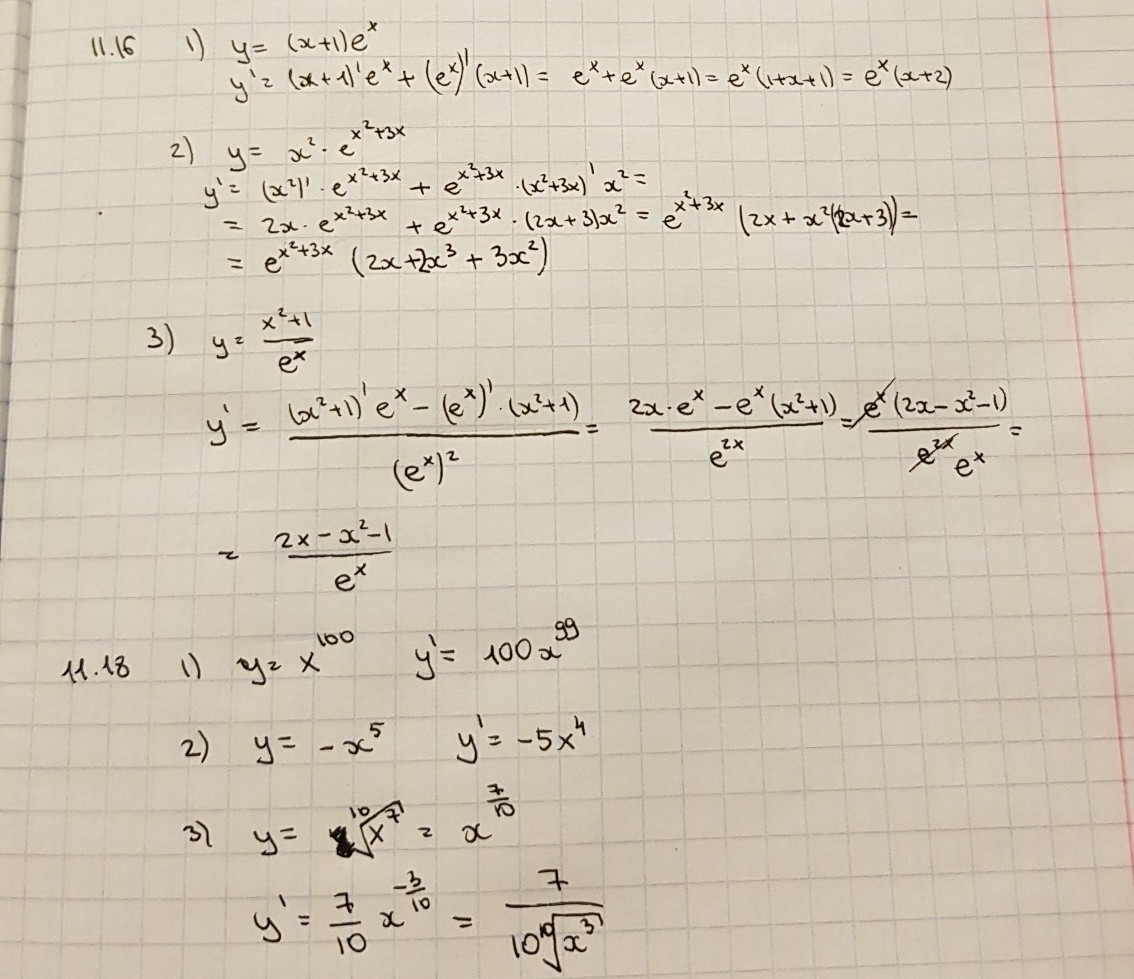 11.16 1) y = (x+1)eˣ
y' = (x+1)'eˣ + (eˣ)'(x+1) = eˣ + eˣ(x+1) = eˣ(1+x+1) = eˣ(x+2)
2) y = x² · e^(x²+3x)
y' = (x²)' · e^(x²+3x) + e^(x²+3x) · (x²+3x)' x² =
= 2x · e^(x²+3x) + e^(x²+3x) · (2x+3)x² = e^(x²+3x) (2x + x²(2x+3)) =
= e^(x²+3x) (2x+2x³ + 3x²)
3) y = (x²+1)/eˣ
y' = ((x²+1)' eˣ − (eˣ)' · (x²+1))/(eˣ)² = (2x·eˣ − eˣ(x²+1))/e^(2x) = eˣ(2x − x² − 1)/e^(2x) eˣ =
= (2x − x² − 1)/eˣ
11.18 1) y = x¹⁰⁰ y' = 100x⁹⁹
2) y = −x⁵ y' = −5x⁴
3) y = ¹⁰√(x⁷) = x^(7/10)
y' = 7/10 x^(−3/10) = 7/(10 ¹⁰√(x³))